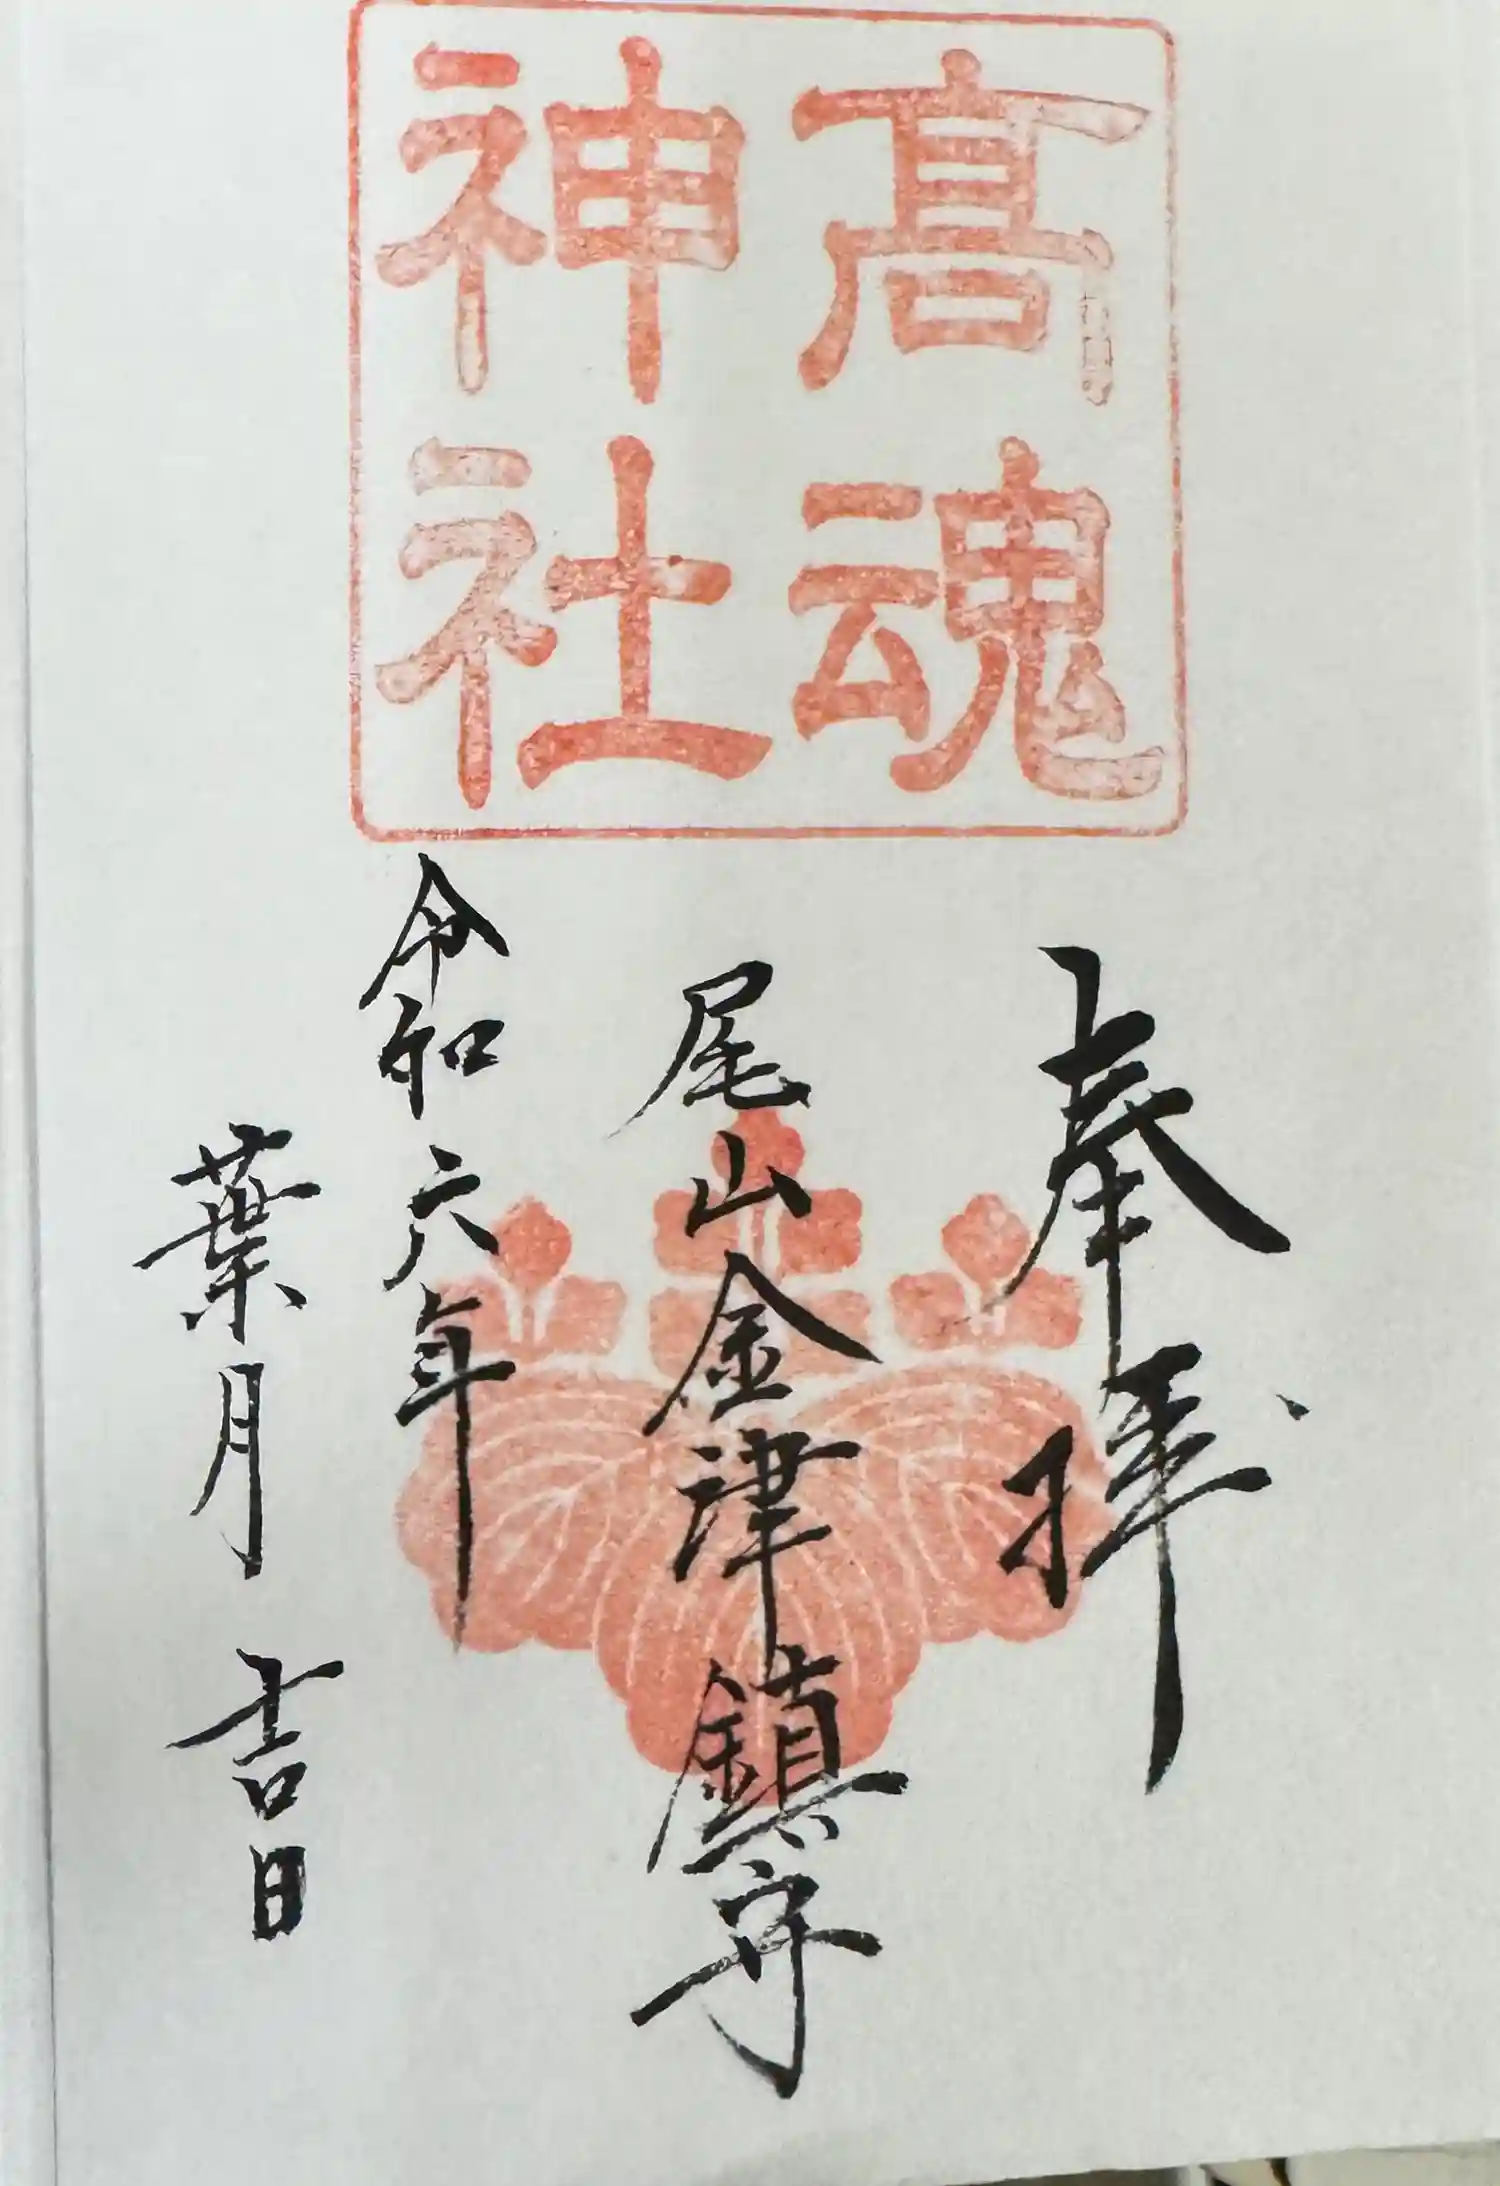 髙魂
神社
奉拝
尾山金津鎮守
令和六年
葉月 吉日